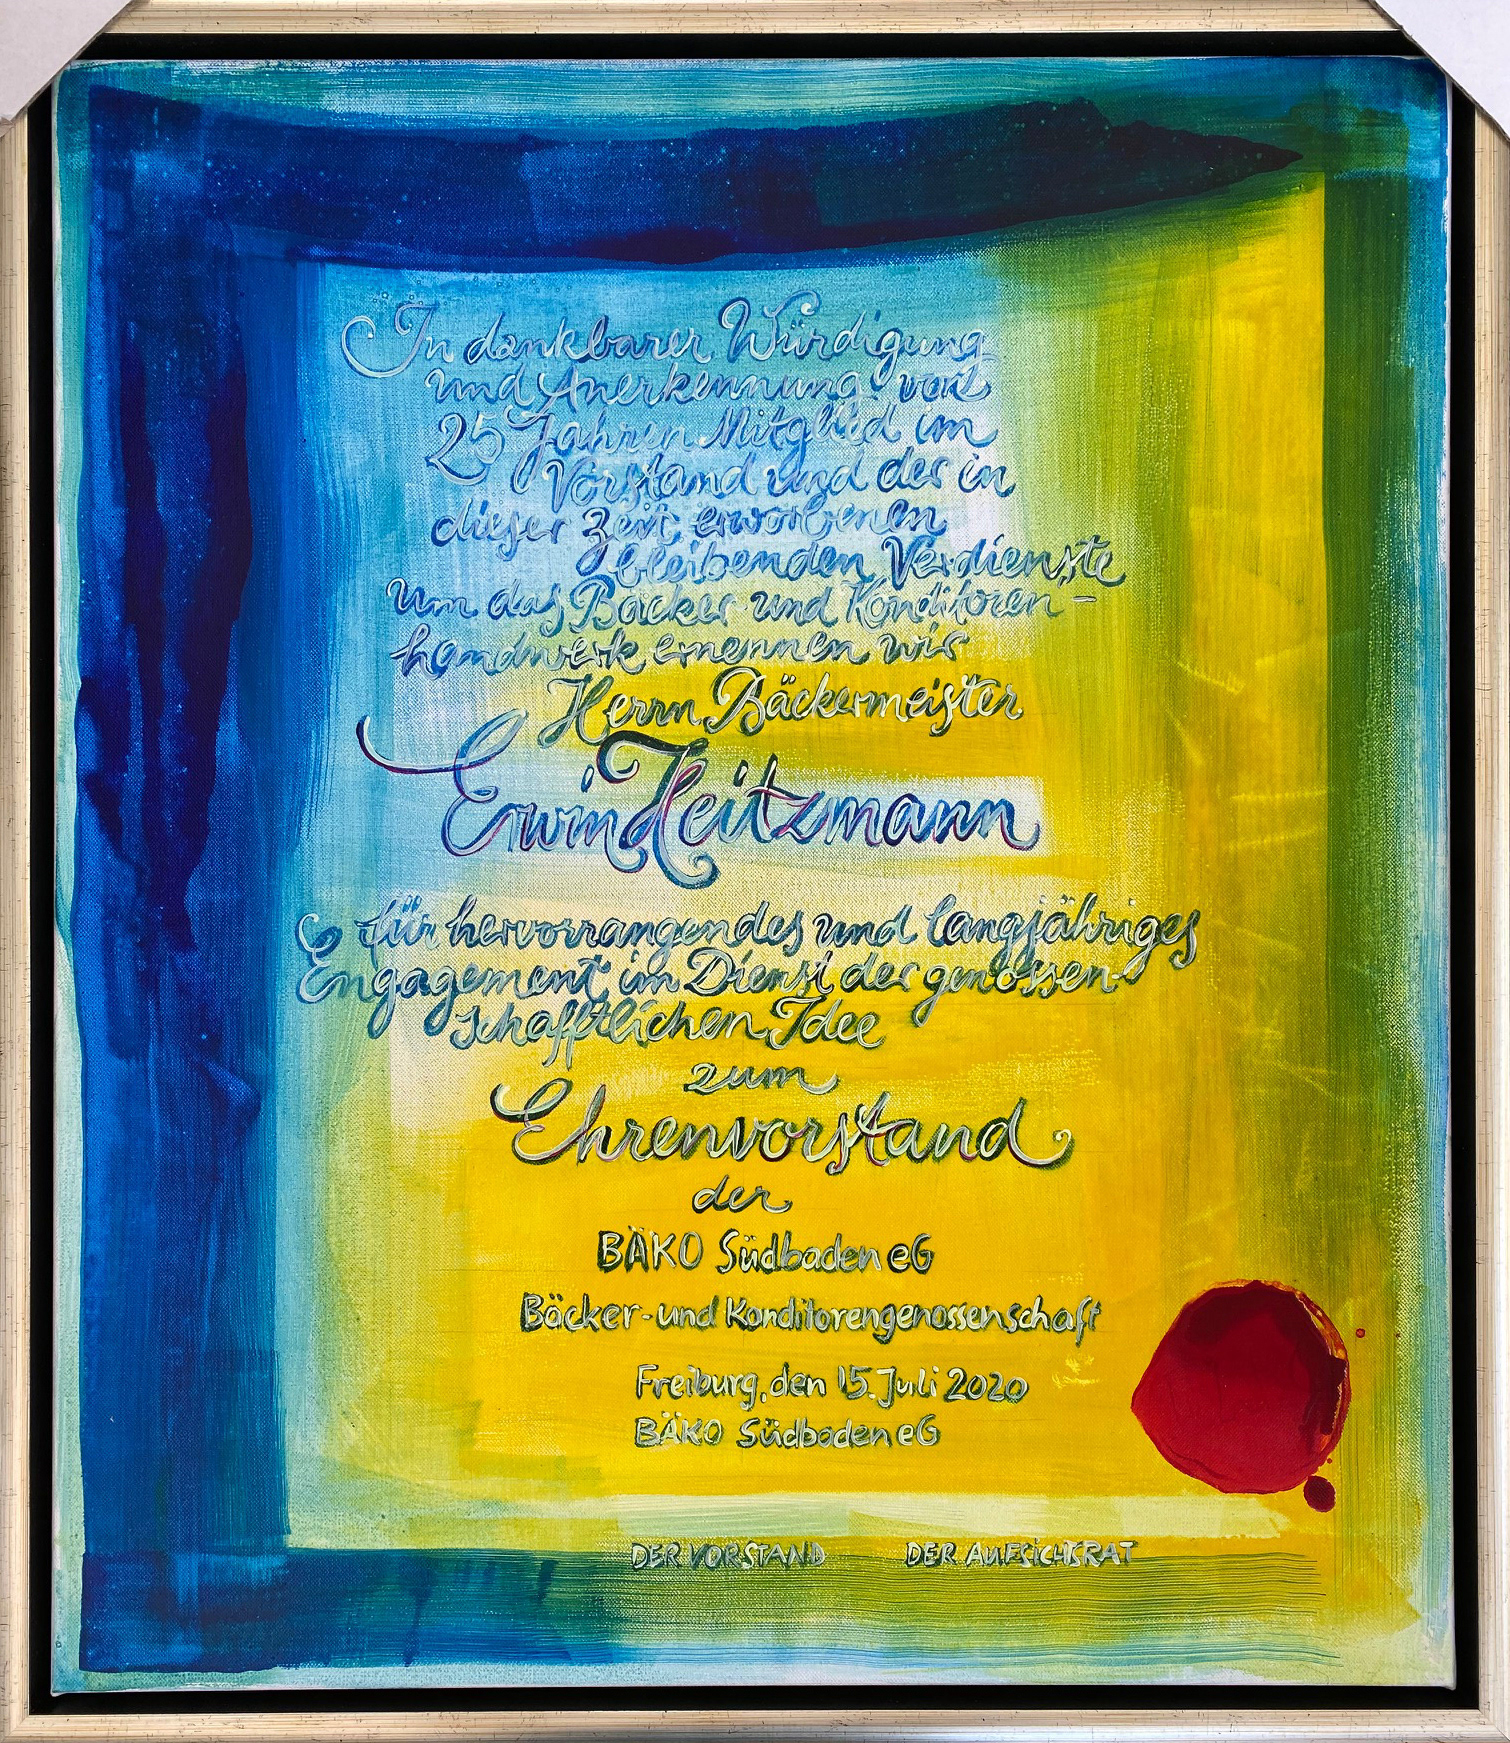 In dankbarer Würdigung
und Anerkennung von
25 Jahren Mitglied im
Vorstand und der in
dieser Zeit erworbenen
bleibenden Verdienste
um das Bäcker und Konditoren-
handwerk ernennen wir
Herrn Bäckermeister
Erwin Heitzmann
für hervorrangendes und langjähriges
Engagement im Dienst der genossen-
schafftlichen Idee
zum
Ehrenvorstand
der
BÄKO Südbaden eG
Bäcker- und Konditorengenossenschaft
Freiburg, den 15. Juli 2020
BÄKO Südbaden eG
DER VORSTAND DER AUFSICHTSRAT